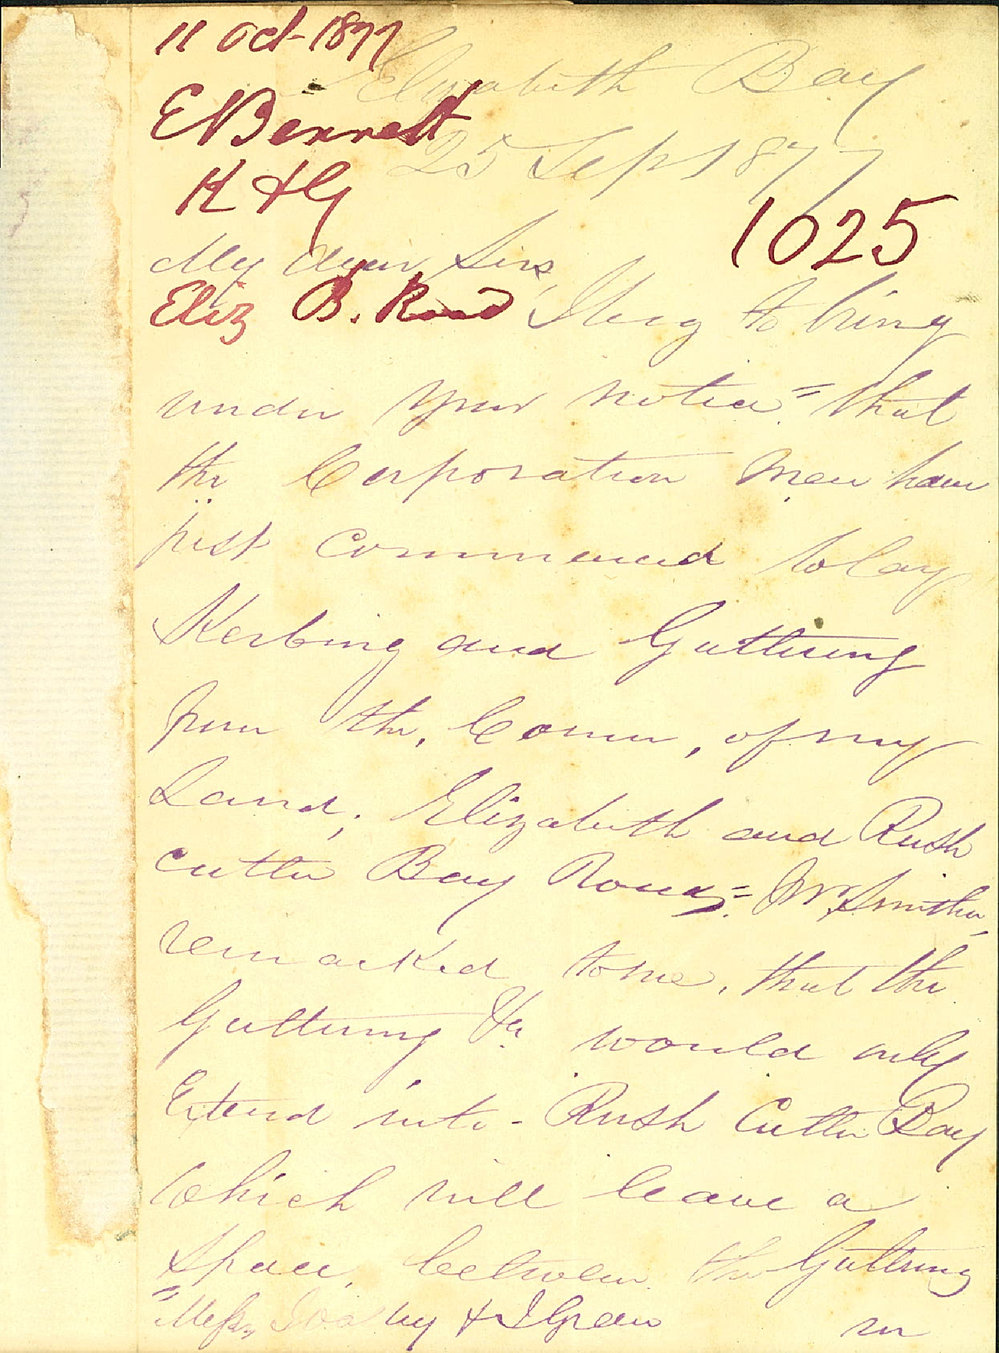 11 Oct 1877
Elizabeth Bay
E Bennett
25 Sep 1877
K & G
1025
My dear Sirs
Eliz B. Road
I beg to bring
under your notice = that
the Corporation men have
just commenced to lay
Kerbing and Guttering
from the, Corner, of my
Land, Elizabeth and Rush
Cutter Bay Roads = Mr Smither,
remarked to me, that the
Guttering &c would only
Extend into - Rush Cutter Bay
which will leave a
space, between the Guttering
Messrs & in